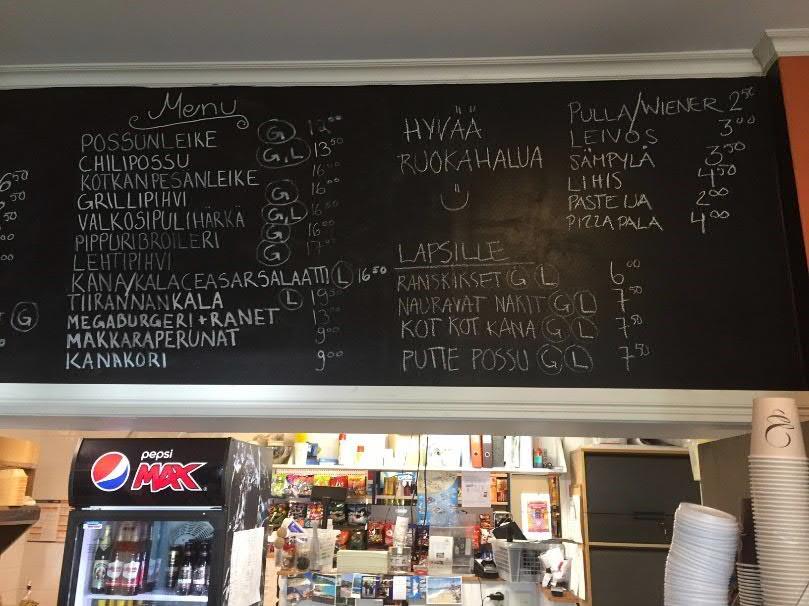 Menu
POSSUNLEIKE G
CHILIPOSSU G,L 13 50
KOTKANPESANLEIKE 16 00
GRILLIPIHVI G 16 00
VALKOSIPULIHÄRKÄ G,L
PIPPURIBROILERI G 16 00
LEHTIPIHVI G
KANA/KALACEASARSALAATTI L 16 50
TIIRANNANKALA L
MEGABURGERI+RANET
MAKKARAPERUNAT 9 00
KANAKORI 9 00
G
HYVÄÄ
RUOKAHALUA
LAPSILLE
RANSKIKSET G L 6 00
NAURAVAT NAKIT G L 7 50
KOT KOT KANA G L 7 50
PUTTE POSSU G L 7 50
PULLA/WIENER 2 50
LEIVOS 3 00
SÄMPYLÄ 3 50
LIHIS 4 50
PASTEIJA 2 00
PIZZAPALA 4 00
pepsi
MAX